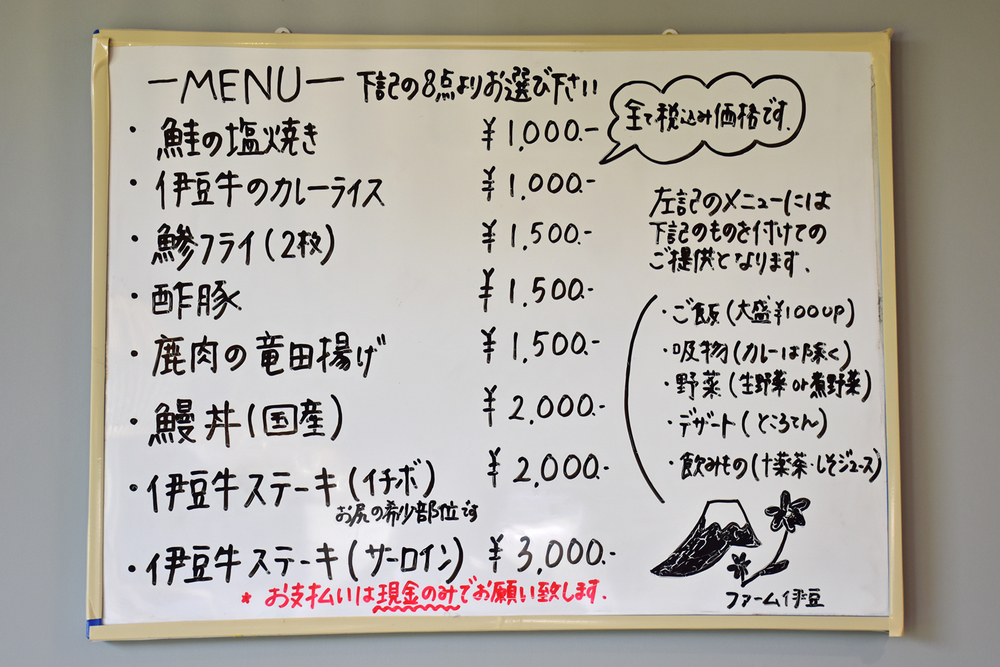 ーMENUー 下記の8点よりお選び下さい
全て税込み価格です.
・鮭の塩焼き ¥1,000.-
・伊豆牛のカレーライス ¥1,000.-
・鯵フライ(2枚) ¥1,500.-
・酢豚 ¥1,500.-
・鹿肉の竜田揚げ ¥1,500.-
・鰻丼(国産) ¥2,000.-
・伊豆牛ステーキ(イチボ) ¥2,000.-
お尻の希少部位です
・伊豆牛ステーキ(サーロイン) ¥3,000.-
* お支払いは現金のみでお願い致します.
左記のメニューには
下記のものを付けての
ご提供となります.
・ご飯(大盛¥100up)
・吸物(カレーは除く)
・野菜(生野菜or煮野菜)
・デザート(ところてん)
・飲みもの(十薬茶・しそジュース)
ファーム伊豆